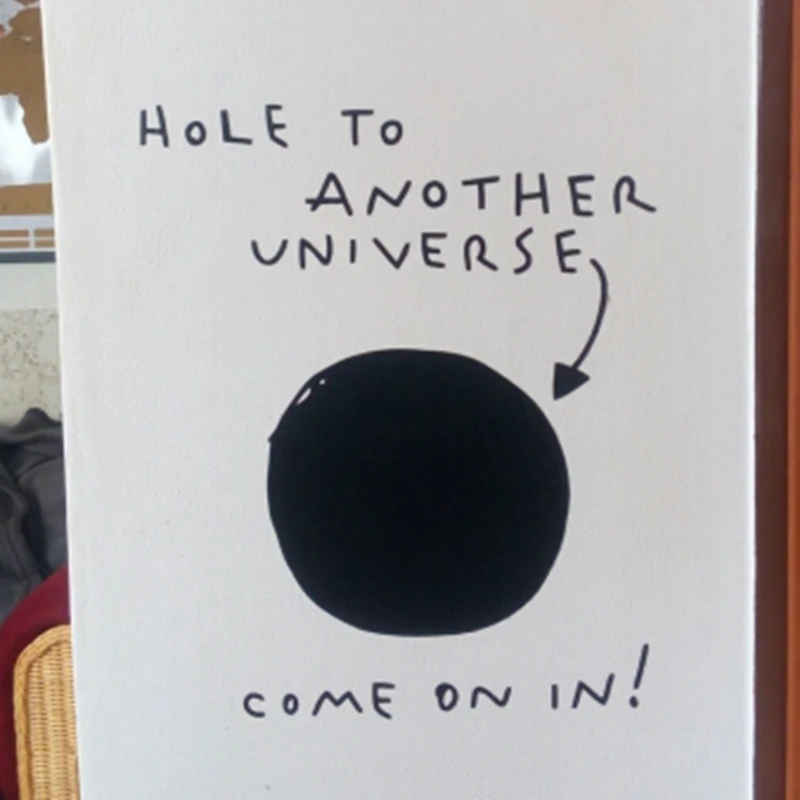 HOLE TO
ANOTHER
UNIVERSE
COME ON IN!